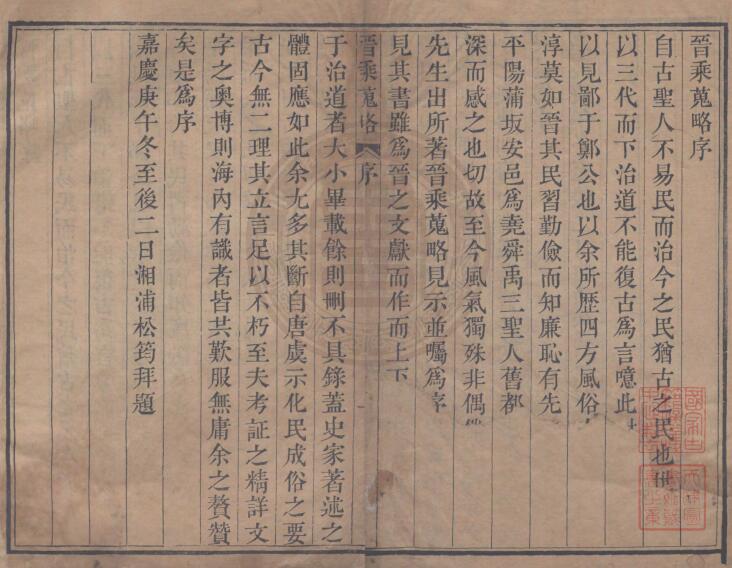 晉乘蒐略序
自古聖人不易民而治今之民猶古之民也世
以三代而下治道不能復古爲言噫此
以見鄙于鄭公也以余所歷四方風俗
淳莫如晉其民習勤儉而知廉恥有先
平陽蒲坂安邑爲堯舜禹三聖人舊都
深而感之也切故至今風氣獨殊非偶
先生出所著晉乘蒐略見示並囑爲序
見其書雖爲晉之文獻而作而上下
晉乘蒐略 序
于治道者大小畢載餘則刪不具錄蓋史家著述之
體固應如此余尢多其斷自唐虞示化民成俗之要
古今無二理其立言足以不朽至夫考証之精詳文
字之奧博則海內有識者皆共歎服無庸余之贅贊
矣是爲序
嘉慶庚午冬至後二日湘浦松筠拜題